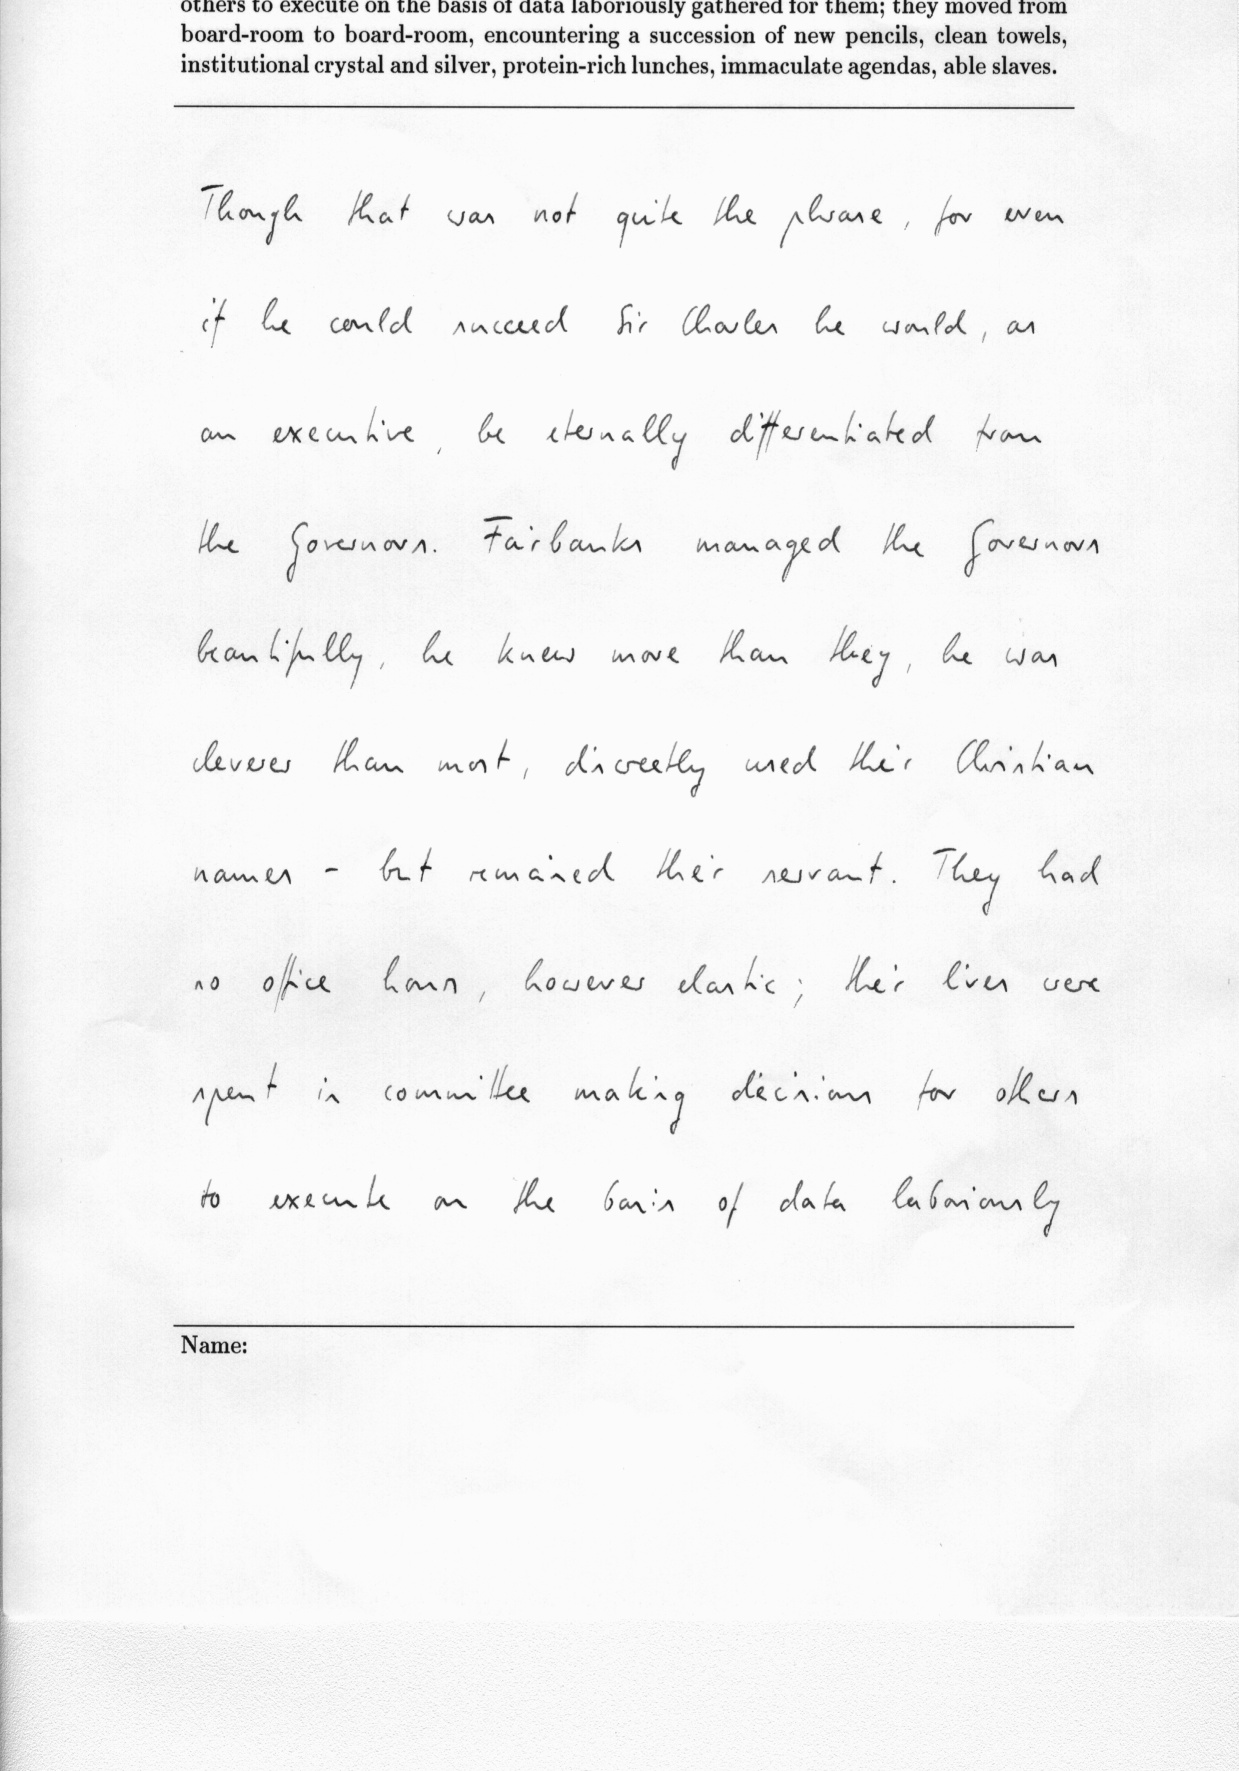 others to execute on the basis of data laboriously gathered for them; they moved from
board-room to board-room, encountering a succession of new pencils, clean towels,
institutional crystal and silver, protein-rich lunches, immaculate agendas, able slaves.
Though that was not quite the phrase, for even
if he could succeed Sir Charles he would, as
an executive, be eternally differentiated from
the Governors. Fairbanks managed the Governors
beautifully, he knew more than they, he was
cleverer than most, discreetly used their Christian
names - but remained their servant. They had
no office hours, however elastic; their lives were
spent in committee making decisions for others
to execute on the basis of data laboriously
Name: